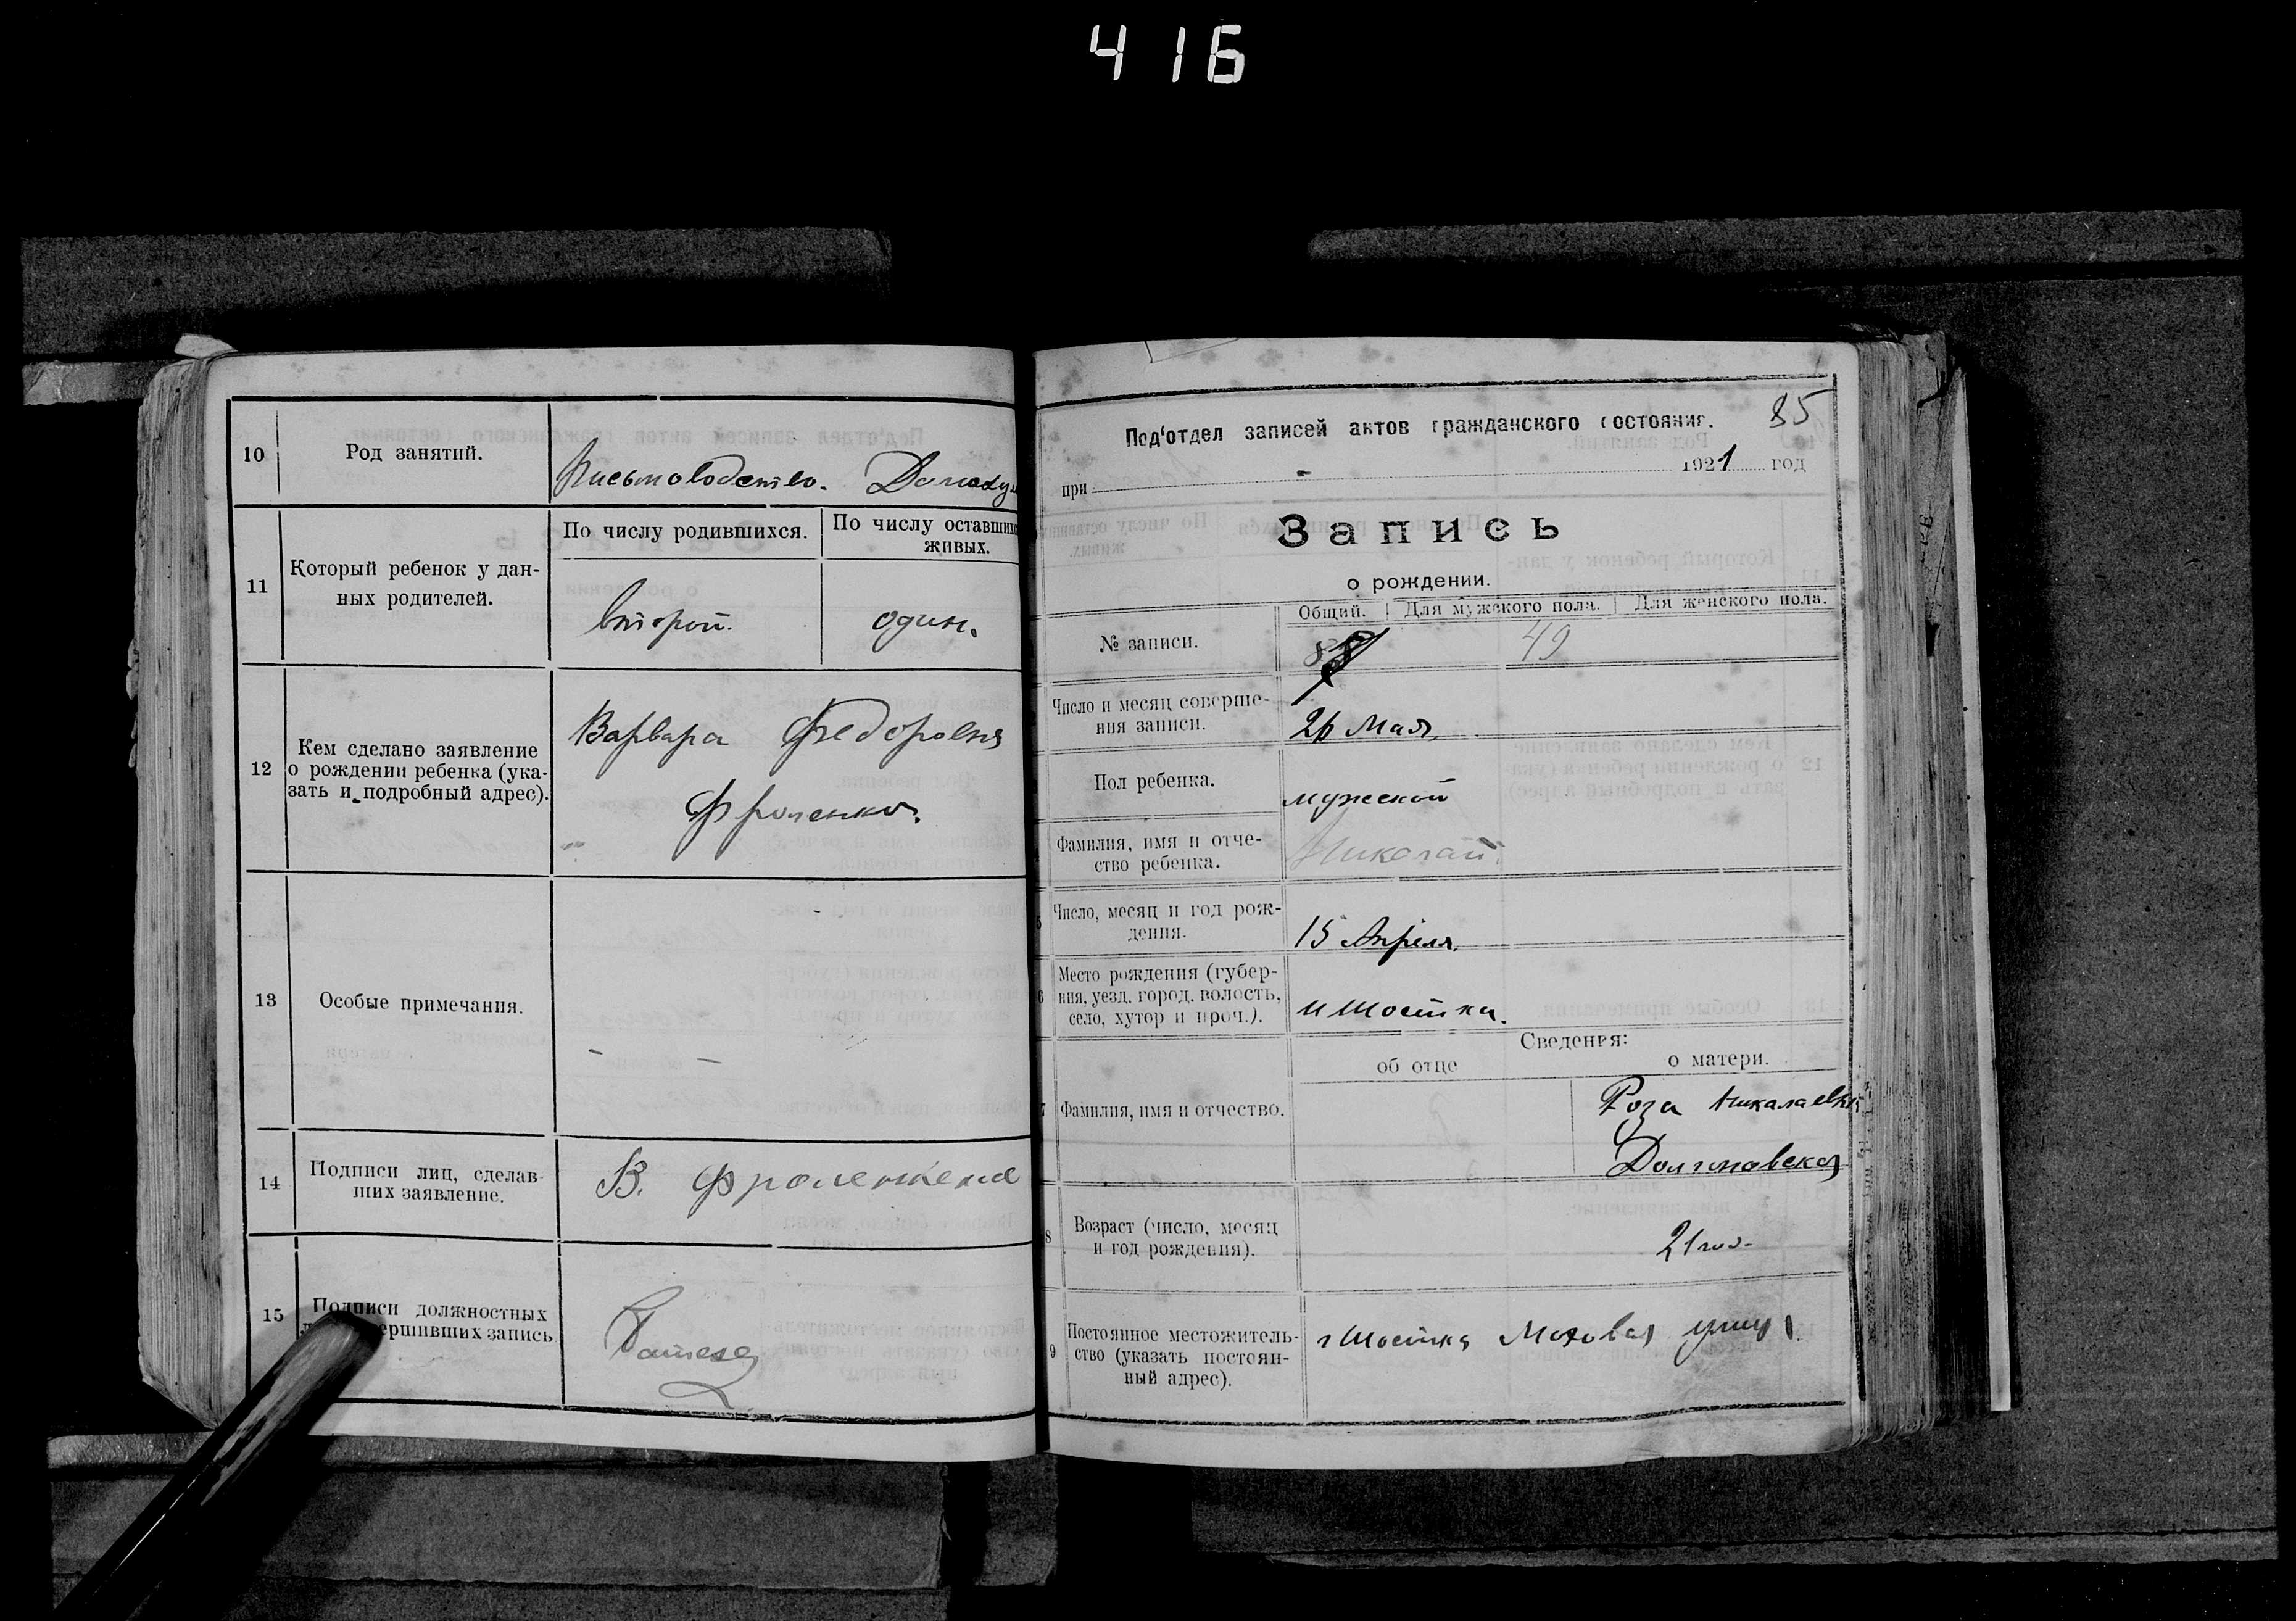 416
10
Род занятий.
Письмоводство.
11
Который ребенок у дан-
ных родителей.
По числу родившихся.
По числу оставшихс
живых.
второй.
один.
12
Кем сделано заявление
о рождении ребенка (ука-
зать и подробный адрес).
Варвара Федоровна
Фроленко.
13
Особые примечания.
— —
14
Подписи лиц, сделав-
ших заявление.
В. Фроленкова
15
Подписи должностных
ершивших запись.
85
Под'отдел записей актов гражданского состояния.
при - 1921 год
Запись
о рождении.
№ записи.
Общий. Для мужского пола. Для женского пола.
49
Число и месяц соверше-
ния записи.
26 Мая.
Пол ребенка.
мужской
Фамилия, имя и отче-
ство ребенка.
Николай.
5
Число, месяц и год рож-
дения.
15 Апреля.
6
Место рождения (губер-
ния, уезд, город, волость,
село, хутор и проч.).
Шостка.
Сведения:
об отце
о матери.
7
Фамилия, имя и отчество.
Роза Николаевн
8
Возраст (число, месяц
и год рождения).
21 год.
9
Постоянное местожитель-
ство (указать постоян-
ный адрес).
г Шостка Моховая улица.